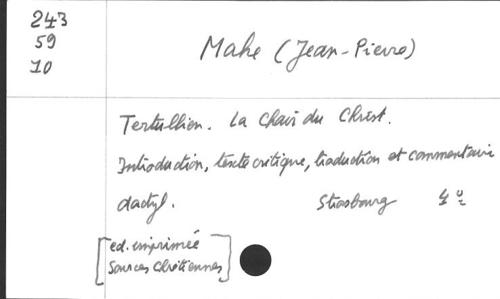 243
59
10
Mahe (Jean-Pierre)
Tertullien. La Chair du Christ.
Introduction, texte critique, traduction et commentaire
dactyl. Strasbourg 4º
[ed. imprimée
Sources Chrétiennes]